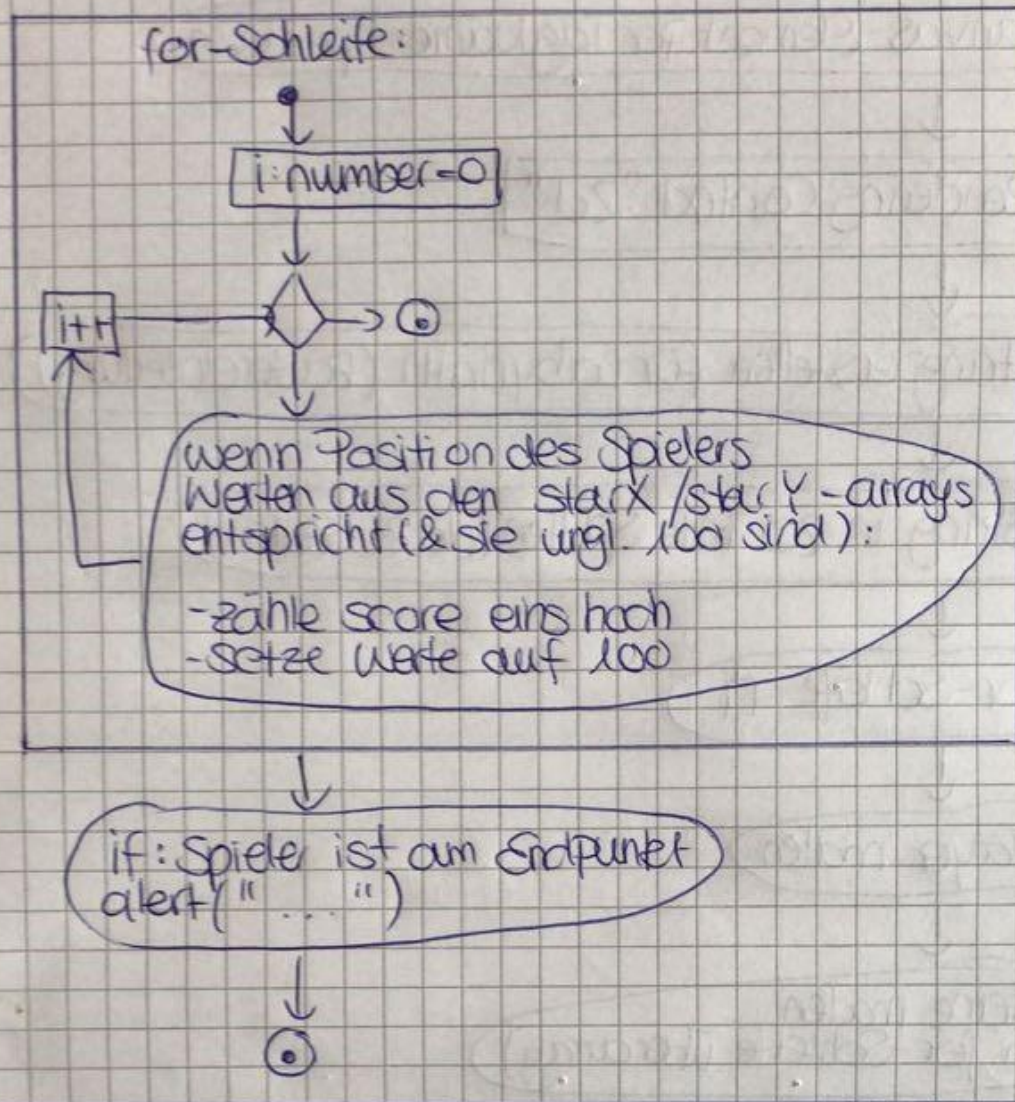 for-Schleife:
i:number=0
i++
wenn Position des Spielers
Werten aus den starX/starY-arrays
entspricht (& sie ungl. 100 sind):
-zähle score eins hoch
-setze Werte auf 100
if: Spieler ist am Endpunkt
alert(" ... ")